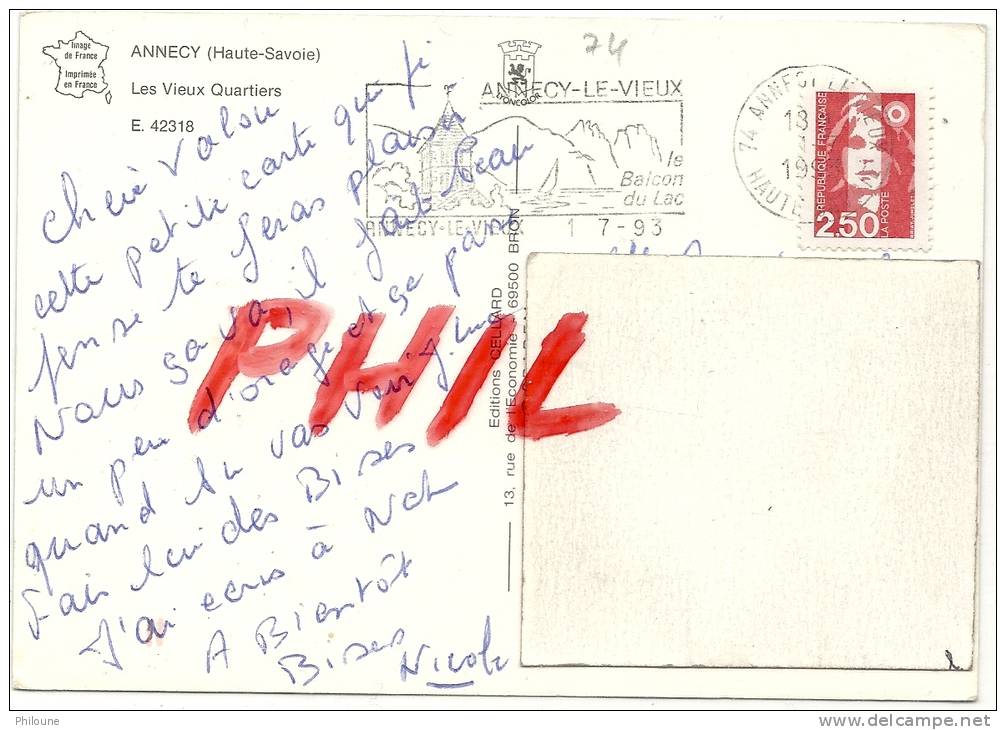 Image
de France
Imprimée
en France
ANNECY (Haute-Savoie)
Les Vieux Quartiers
E. 42318
74
ANNECY-LE-VIEUX
le
Balcon
du Lac
ANNECY-LE-VIEUX 1 7-93
74 ANNECY LE VIEUX
18
199
HAUTE
REPUBLIQUE FRANÇAISE
LA POSTE
2,50
cette petite carte que je
pense te feras plaisir
Nous sa va, il fait beau
un peu d'orage et sa passe
quand tu vas venir
Fais lui des Bises
J'ai ecris à Nat
A Bientôt
Bises
Nicole
PHIL
Editions CELLARD
13, rue de l'Economie 69500 BRON
Philoune
www.delcampe.net